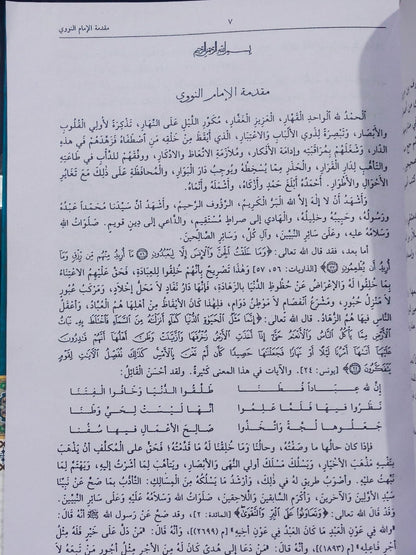 ٧
مقدمة الإمام النووي
بسم الله الرحمن الرحيم
مقدمة الإمام النووي
الْحَمْدُ لله الْوَاحِدِ الْقَهَّارِ، الْعَزِيزِ الْغَفَّارِ، مُكَوِّرِ اللَّيْلِ عَلَى النَّهَارِ، تَذْكِرَةً لأُولِي الْقُلُوبِ
والأَبْصَارِ، وَتَبْصِرَةً لِذَوِي الأَلْبَابِ وَالاعْتِبَارِ، الَّذِي أَيْقَظَ مِنْ خَلْقِهِ مَنِ اصْطَفَاهُ فَزَهَّدَهُمْ فِي هذِهِ
الدَّارِ، وَشَغَلَهُمْ بِمُرَاقَبَتِهِ وإدَامَةِ الأَفْكَارِ، وَمُلازَمَةِ الاتِّعَاظِ وَالادِّكَارِ، وَوَفَّقَهُمْ لِلدَّأْبِ فِي طَاعَتِهِ
والتَّأَهُّبِ لِدَارِ الْقَرَارِ، وَالْحَذَرِ مِمَّا يُسْخِطُهُ ويُوجِبُ دَارَ الْبَوَارِ، وَالْمُحَافَظَةِ عَلَى ذلِكَ مَعَ تَغَايُرِ
الأَحْوَالِ وَالأَطْوَارِ. أَحْمَدُهُ أَبْلَغَ حَمْدٍ وَأَزْكَاهُ، وَأَشْمَلَهُ وَأَنْمَاهُ.
وَأَشْهَدُ أَنْ لا إلهَ إلاَّ اللهُ الْبَرُّ الْكَرِيمُ، الرَّؤُوفُ الرَّحِيمُ، وَأَشْهَدُ أَنَّ سَيِّدَنَا مُحَمَّداً عَبْدُهُ
ورَسُولُهُ، وَحَبِيبُهُ وخَلِيلُهُ، وَالْهَادِي إلى صِرَاطٍ مُسْتَقِيمٍ، والدَّاعِي إلى دِينٍ قَوِيمٍ. صَلَوَاتُ اللهِ
وَسَلامُهُ عليهِ، وعَلَى سَائِرِ النَّبِيِّينَ، وَآلِ كُلٍّ، وَسَائِرِ الصَّالِحِينَ.
أما بعد، فقد قال الله تعالى: ﴿وَمَا خَلَقْتُ الْجِنَّ وَالْإِنسَ إِلَّا لِيَعْبُدُونِ ۝ مَا أُرِيدُ مِنْهُم مِّن رِّزْقٍ وَمَا
أُرِيدُ أَن يُطْعِمُونِ ۝﴾ [الذاريات: ٥٦، ٥٧] وَهْذَا تَصْرِيحٌ بِأَنَّهُمْ خُلِقُوا لِلعِبَادَةِ، فَحَقَّ عَلَيْهِمُ الاعْتِنَاءُ
بِمَا خُلِقُوا لَهُ وَالإعْرَاضُ عَنْ حُظُوظِ الدُّنْيَا بِالزَّهَادَةِ، فَإنَّهَا دَارُ نَفَادٍ لاَ مَحَلُّ إخْلاَدٍ، وَمَرْكَبُ عُبُورٍ
لاَ مَنْزِلُ حُبُورٍ، ومَشْرَعُ انْفِصَامٍ لاَ مَوْطِنُ دَوَامٍ، فَلِهذَا كَانَ الأَيْقَاظُ مِنْ أَهْلِهَا هُمُ الْعُبَّادُ، وَأَعْقَلُ
النَّاسِ فيهَا هُمُ الزُّهَّادُ. قالَ اللهُ تعالى: ﴿إِنَّمَا مَثَلُ الْحَيَاةِ الدُّنْيَا كَمَاءٍ أَنزَلْنَاهُ مِنَ السَّمَاءِ فَاخْتَلَطَ بِهِ نَبَاتُ
الْأَرْضِ مِمَّا يَأْكُلُ النَّاسُ وَالْأَنْعَامُ حَتَّىٰ إِذَا أَخَذَتِ الْأَرْضُ زُخْرُفَهَا وَازَّيَّنَتْ وَظَنَّ أَهْلُهَا أَنَّهُمْ قَادِرُونَ
عَلَيْهَا أَتَاهَا أَمْرُنَا لَيْلًا أَوْ نَهَارًا فَجَعَلْنَاهَا حَصِيدًا كَأَن لَّمْ تَغْنَ بِالْأَمْسِ كَذَٰلِكَ نُفَصِّلُ الْآيَاتِ لِقَوْمٍ
يَتَفَكَّرُونَ ۝﴾ [يونس: ٢٤]. والآيات في هذا المعنى كثيرةٌ. ولقد أَحْسَنَ الْقَائِلُ:
إنَّ للهِ عِبَاداً فُطَنَا طَلَّقُوا الدُّنْيَا وخَافُوا الْفِتَنَا
نَظَرُوا فِيهَا فَلَمَّا عَلِمُوا أَنَّهَا لَيْسَتْ لِحَيٍّ وَطَنَا
جَعَلُوهَا لُجَّةً واتَّخَذُوا صَالِحَ الأَعْمَالِ فِيهَا سُفُنَا
فإذا كان حالُها ما وصَفْتُهُ، وحالُنَا وَمَا خُلِقْنَا لَهُ مَا قَدَّمْتُهُ؛ فَحَقٌّ عَلَى الْمُكلَّفِ أَنْ يَذْهَبَ
بِنَفْسِهِ مَذْهَبَ الأَخْيَارِ، وَيَسْلُكَ مَسْلَكَ أُولي النُّهَى وَالأَبْصَارِ، ويَتَأَهَّبَ لِمَا أَشَرْتُ إليهِ، وَيَهْتَمَّ لِمَا
نَبَّهْتُ عليهِ. وأَصْوَبُ طريقٍ لهُ في ذلِكَ، وَأَرْشَدُ مَا يَسْلُكُهُ مِنَ الْمَسَالِكِ، التَّأَدُّبُ بمَا صَحَّ عَنْ نَبِيِّنَا
سَيِّدِ الأَوَّلِينَ والآخَرينَ، وَأَكْرَمِ السَّابِقينَ والَّلاحِقِينَ، صَلَوَاتُ اللهِ وَسَلاَمُهُ عَلَيْهِ وَعَلَى سَائِرِ النَّبِيِّينَ.
وقدْ قالَ اللهُ تعالى: ﴿وَتَعَاوَنُوا عَلَى الْبِرِّ وَالتَّقْوَىٰ﴾ [المائدة: ٢]، وقد صَحَّ عَنْ رسولِ الله ﷺ أَنَّهُ قَالَ:
«واللهُ في عَوْنِ الْعَبْدِ مَا كَانَ الْعَبْدُ في عَوْنِ أَخِيهِ» [م (٢٦٩٩)]، وَأَنَّهُ قالَ: «مَنْ دَلَّ عَلَى خَيْرٍ فَلَهُ مِثْلُ
أَجْرِ فَاعِلِهِ» [م (١٨٩٣)]، وأَنَّهُ قالَ: «مَنْ دَعَا إلى هُدىً كَانَ لَهُ مِنَ الأَجْرِ مِثْلُ أُجُورِ مَنْ تَبِعَهُ لاَ